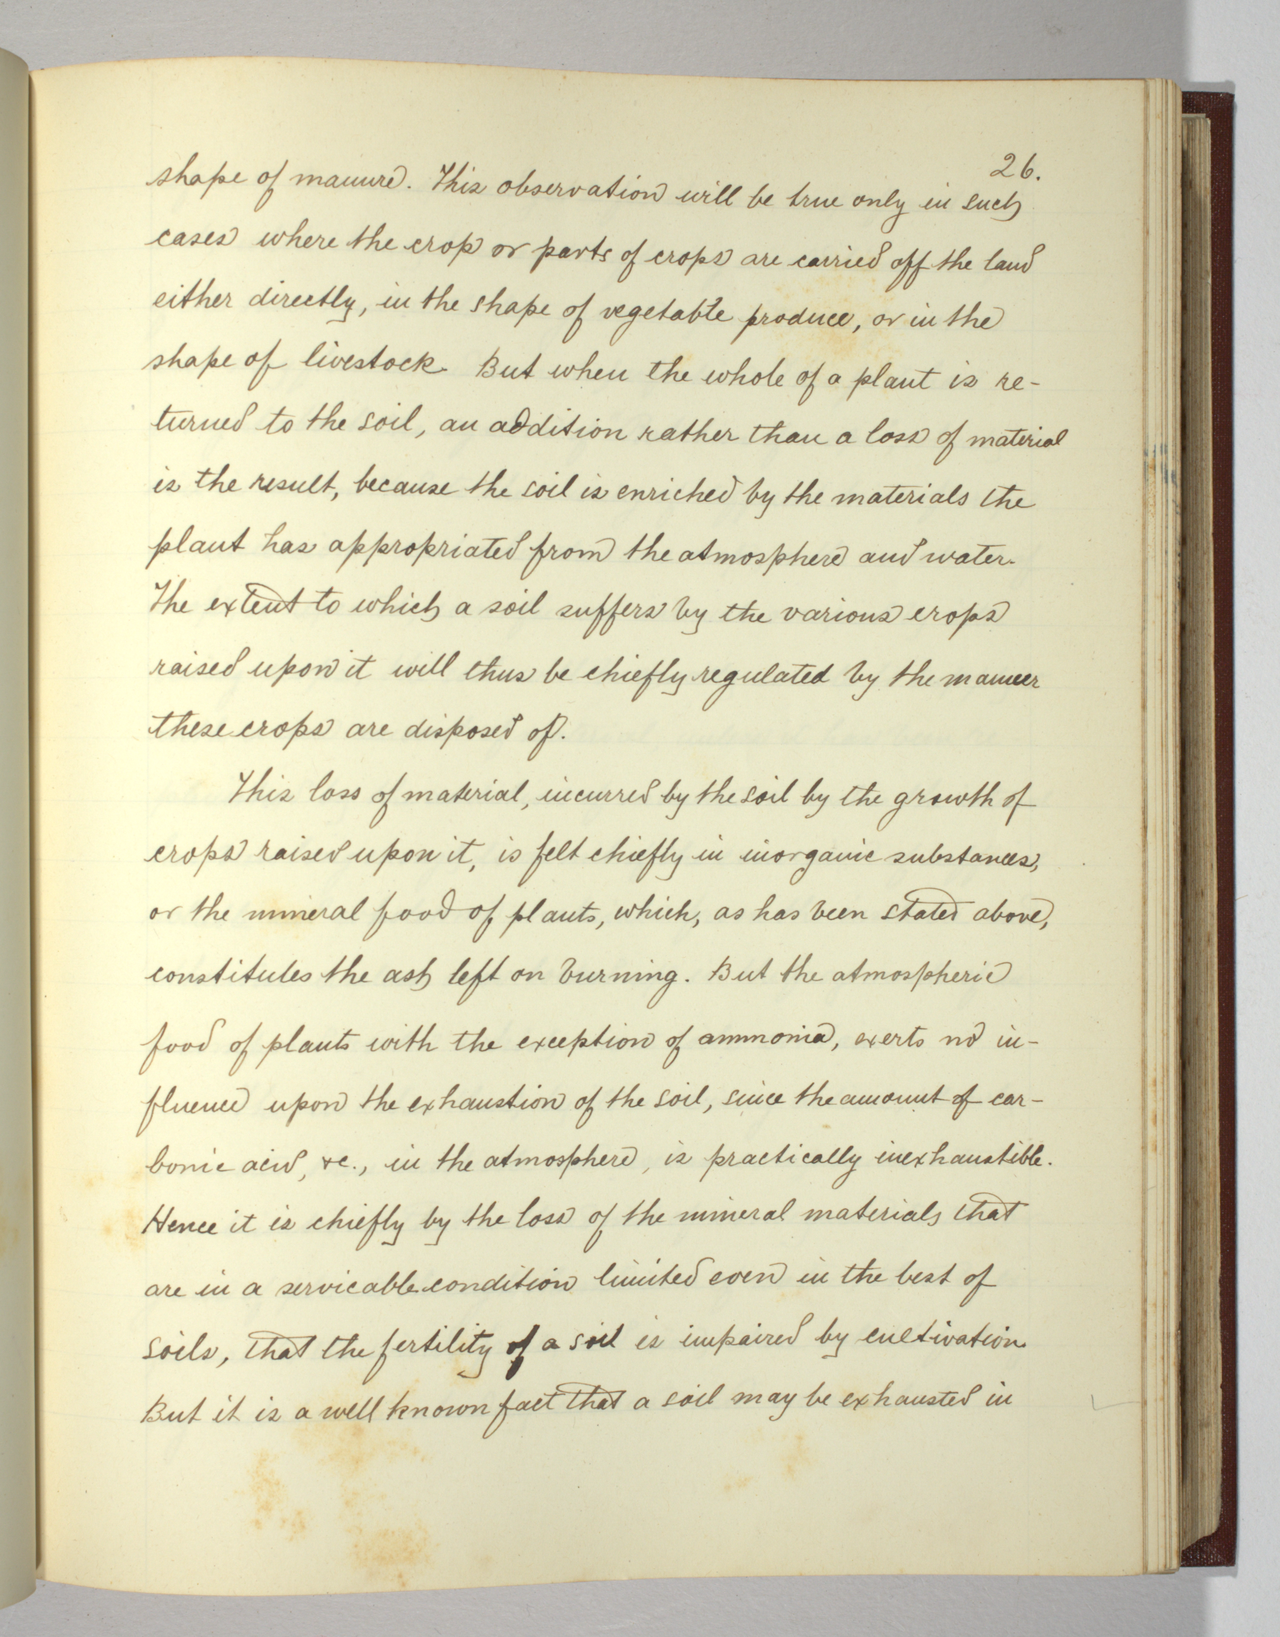 26.
shape of manure. This observation will be true only in such
cases where the crop or parts of crops are carried off the land
either directly, in the shape of vegetable produce, or in the
shape of livestock. But when the whole of a plant is re-
turned to the soil, an addition rather than a loss of material
is the result, because the soil is enriched by the materials the
plant has appropriated from the atmosphere and water.
The extent to which a soil suffers by the various crops
raised upon it will thus be chiefly regulated by the manner
these crops are disposed of.
This loss of material, incurred by the soil by the growth of
crops raised upon it, is felt chiefly in inorganic substances,
or the mineral food of plants, which, as has been stated above,
constitutes the ash left on burning. But the atmospheric
food of plants with the exception of ammonia, exerts no in-
fluence upon the exhaustion of the soil, since the amount of car-
bonic acid, &c., in the atmosphere, is practically inexhaustible.
Hence it is chiefly by the loss of the mineral materials that
are in a servicable condition limited even in the best of
soils, that the fertility of a soil is impaired by cultivation
But it is a well known fact that a soil may be exhausted in